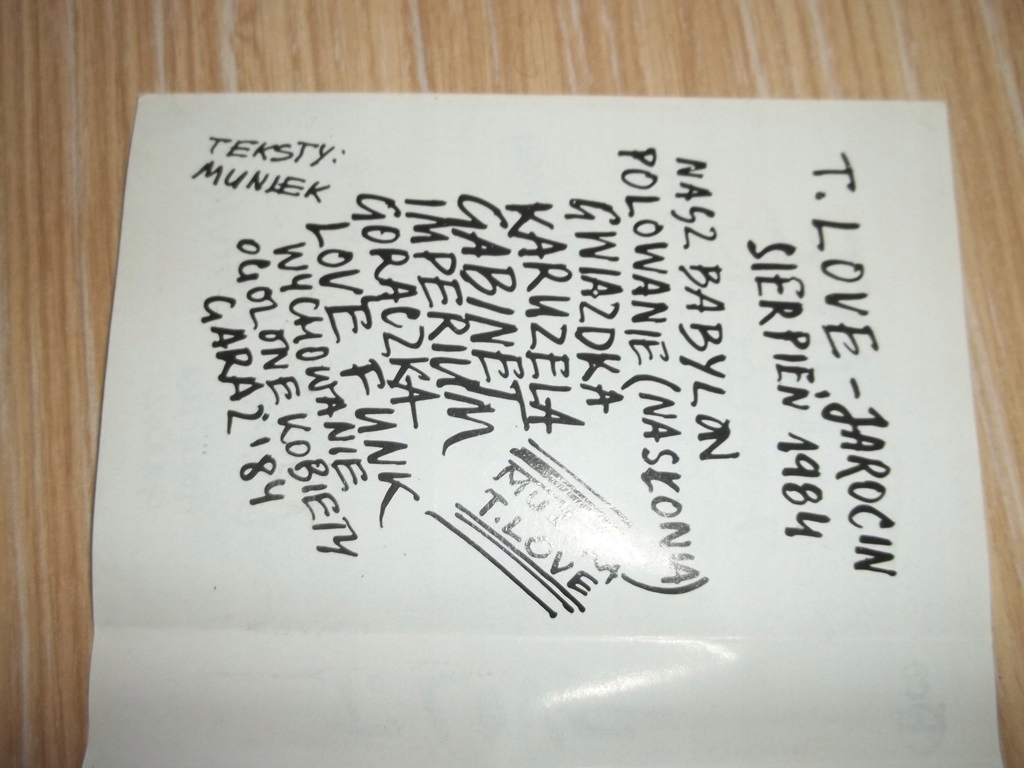 T. LOVE - JAROCIN
SIERPIEŃ 1984
NASZ BABYLON
POLOWANIE (NASKONIA)
GWIAZDKA
KARUZELA
GABINET
IMPERIUM
GORĄCZKA
LOVE FUNK
WYCHOWANIE
OGOLONE KOBIETY
GARAŻ '84
T. LOVE
TEKSTY:
MUNIEK